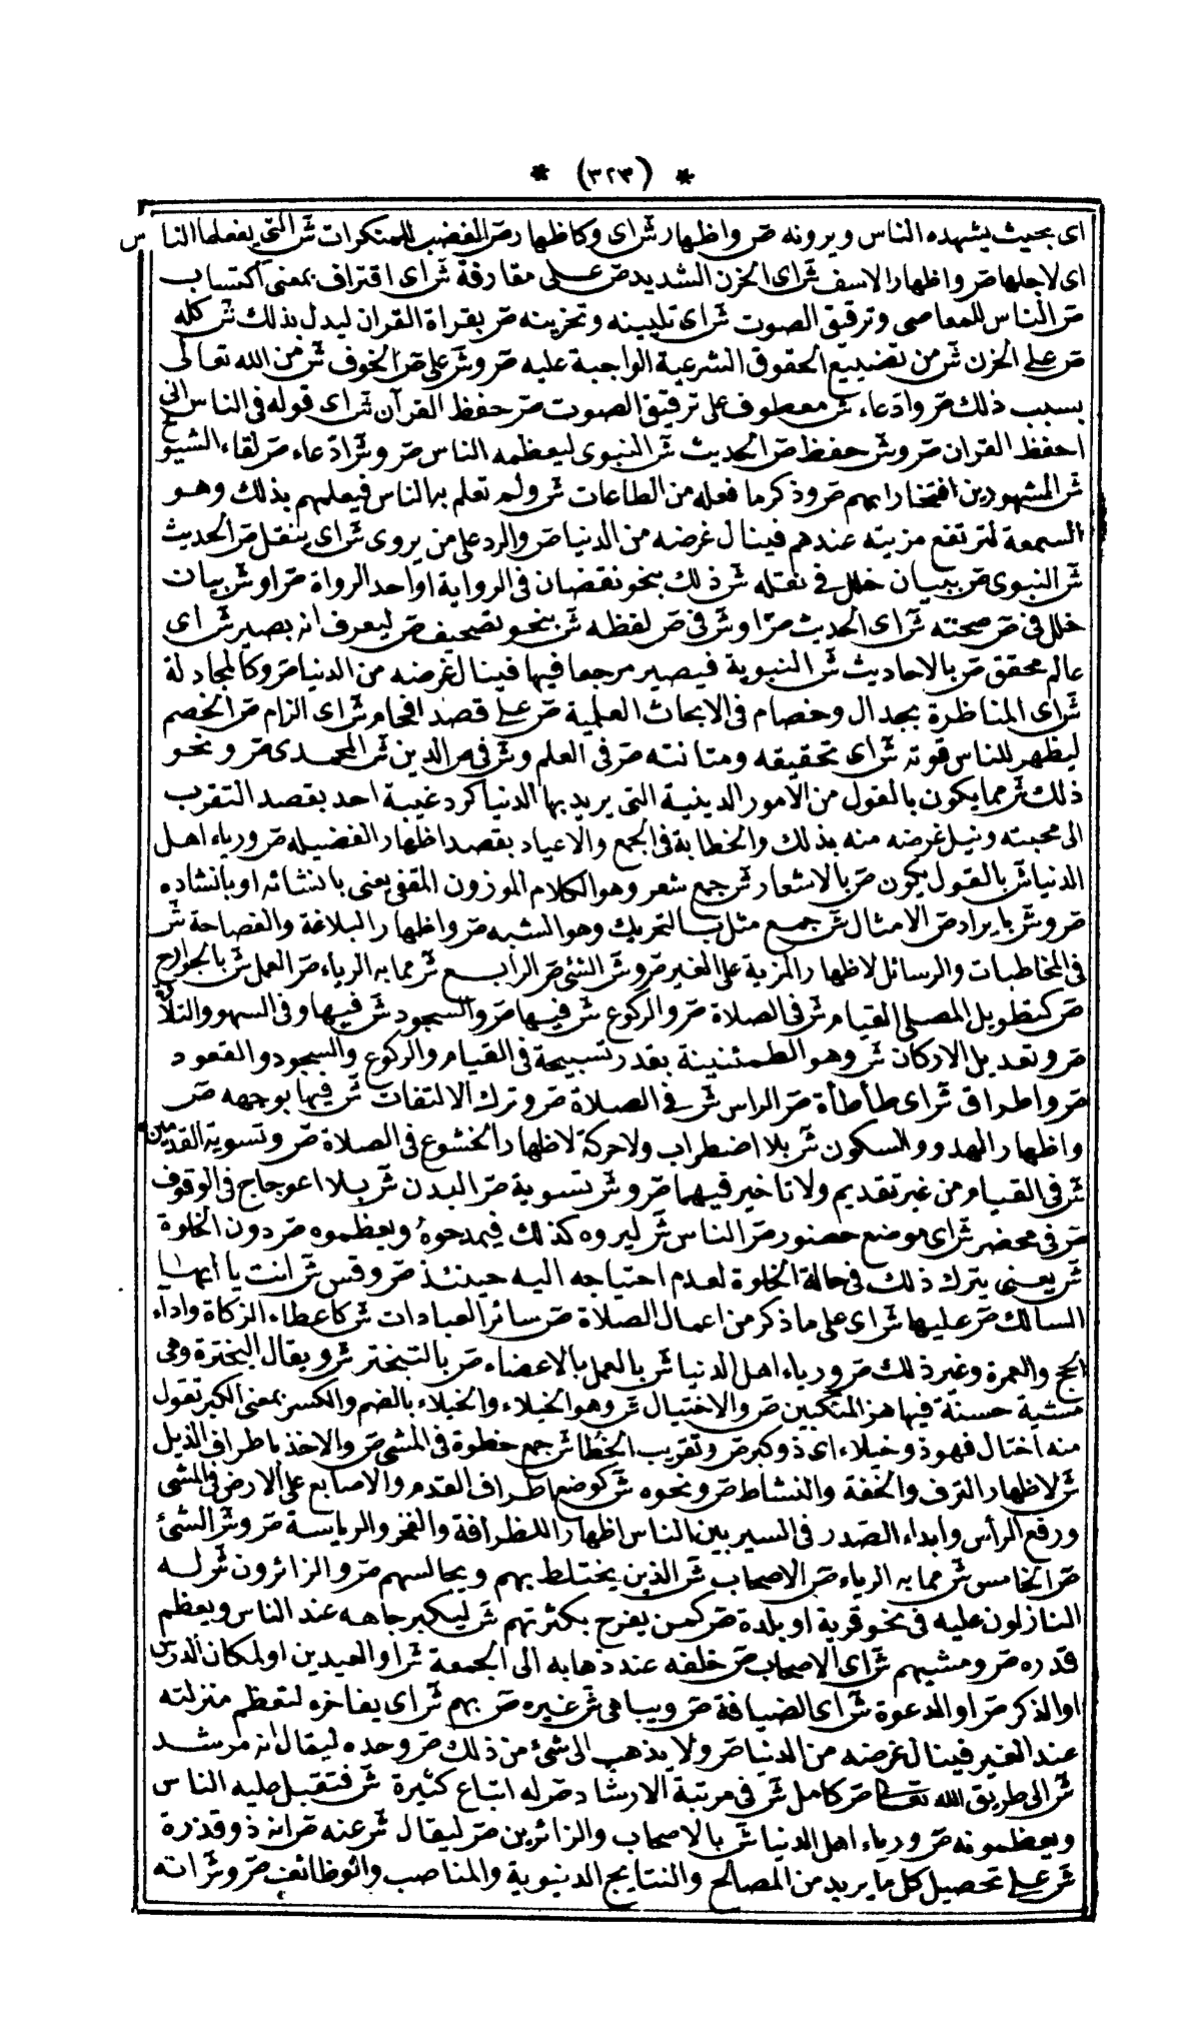 * (٣٢٣) *
اى بحيث يشهده الناس ويرونه ص واظهار ش اى وكاظهار ص الغضب للمنكرات ش التى يفعلها الناس
اى لاجلها ص واظهار الاسف ش اى الحزن الشديد ص على مقارفة ش اى اقتراف بمعنى اكتساب
ص الناس للمعاصى وترقيق الصوت ش اى تليينه وتحزينه ص بقراة القران ليدل بذلك ش كله
ص على الحزن ش من تضييع الحقوق الشرعية الواجبة عليه ص وش على ص الخوف ش من الله تعالى
بسبب ذلك ص وادعاء ش معطوف على ترقيق الصوت ص حفظ القرآن ش اى قوله فى الناس انى
احفظ القران ص وش حفظ ص الحديث ش النبوى ليعظمه الناس ص وش ادعاء ص لقاء الشيوخ
ش المشهورين افتخارا بهم ص وذكر ما فعله من الطاعات ش ولم تعلم بها الناس فيعلمهم بذلك وهو
السمعة لترتفع مزيته عندهم فينال غرضه من الدنيا ص والرد على من يروى ش اى ينقل ص الحديث
ش النبوى ص ببيان خلل فى نقله ش ذلك بنحو نقصان فى الرواية او احد الرواة ص او ش بيان
خلل فى ص صحته ش اى الحديث ص او ش فى ص لفظه ش بنحو تصحيف ص ليعرف انه بصير ش اى
عالم محقق ص بالاحاديث ش النبوية فيصير مرجعا فيها فينال غرضه من الدنيا ص وكالمجادلة
ش اى المناظرة بجدال وخصام فى الابحاث العلمية ص على قصد افحام ش اى الزام ص الخصم
ليظهر للناس قوته ش اى تحقيقه ومتانته ص فى العلم وش فى ص الدين ش المحمدى ص ونحو
ذلك ش مما يكون بالقول من الامور الدينية التى يريد بها الدنيا كرد غيبة احد بقصد التقرب
الى محبته ونيل غرضه منه بذلك والخطابة فى الجمع والاعياد بقصد اظهار الفضيله ص ورياء اهل
الدنيا ش بالقول يكون ص بالاشعار ش جمع شعر وهو الكلام الموزون المقفى يعنى بانشائه او بانشاده
ص وش بايراد ص الامثال ش جمع مثل بالتحريك وهو الشبه ص واظهار البلاغة والفصاحة ش
فى المخاطبات والرسائل لاظهار المزية على الغير ص وش الشئ ص الرابع ش مما به الرياء ص العمل ش بالجوارح
ص كتطويل المصلى القيام ش فى الصلاة ص والركوع ش فيها ص والسجود ش فيها وفى السهو والتلاوة
ص وتعديل الاركان ش وهو الطمئنينة بقدر تسبيحة فى القيام والركوع والسجود والقعود
ص واطراق ش اى طأطأة ص الراس ش فى الصلاة ص وترك الالتفات ش فيها بوجهه ص
واظهار الهدو والسكون ش بلا اضطراب ولا حركة لاظهار الخشوع فى الصلاة ص وتسوية القدمين
ش فى القيام من غير تقديم ولا تاخير فيهما ص وش تسوية ص البدن ش بلا اعوجاج فى الوقوف
ص فى محضر ش اى موضع حضور ص الناس ش ليروه كذلك فيمدحوه ويعظموه ص دون الخلوة
ش يعنى يترك ذلك فى حالة الخلوة لعدم احتياجه اليه حينئذ ص وقس ش انت يا ايها
السالك ص عليها ش اى على ما ذكر من اعمال الصلاة ص سائر العبادات ش كاعطاء الزكاة واداء
الحج والعمرة وغير ذلك ص ورياء اهل الدنيا ش بالعمل بالاعضاء ص بالتبختر ش ويقال البخترة وهى
مشية حسنة فيها هز المنكبين ص والاختيال ش وهو الخيلاء والخيلاء بالضم والكسر بمعنى الكبر تقول
منه اختال فهو ذو خيلاء اى ذو كبر ص وتقريب الخطا ش جمع خطوة فى المشى ص والاخذ باطراف الذيل
ش لاظهار الترف والخفة والنشاط ص ونحوه ش كوضع اطراف القدم والاصابع على الارض فى المشى
ورفع الرأس وابداء الصدر فى السير بين الناس اظهارا للظرافة والفخر والرياسة ص وش الشئ
ص الخامس ش مما به الرياء ص الاصحاب ش الذين يختلط بهم ويجالسهم ص والزائرون ش له
النازلون عليه فى نحو قرية او بلدة ص كمن يفرح بكثرتهم ش ليكبر جاهه عند الناس ويعظم
قدره ص ومشيهم ش اى الاصحاب ص خلفه عند ذهابه الى الجمعة ش او العيدين او لمكان الدرس
او الذكر ص او الدعوة ش اى الضيافة ص ويباهى ش غيره ص بهم ش اى يفاخره لتعظم منزلته
عند الغير فينال غرضه من الدنيا ص ولا يذهب الى شئ من ذلك ص وحده ليقال انه مرشد
ش الى طريق الله تعالى ص كامل ش فى مرتبة الارشاد ص له اتباع كثيرة ش فتقبل عليه الناس
ويعظمونه ص ورياء اهل الدنيا ش بالاصحاب والزائرين ص ليقال ش عنه ص انه ذو قدرة
ش على تحصيل كل ما يريد من المصالح والنتايج الدنيوية والمناصب والوظائف ص وش انه